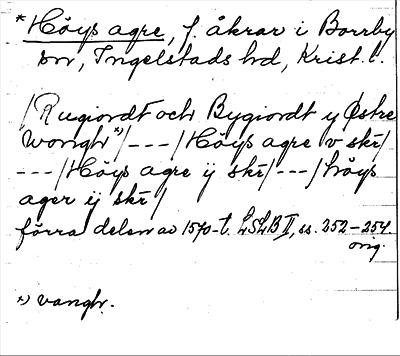 * Höys agre, f. åkrar i Borrby
sn, Ingelstads hd, Krist. l.
/Rugiordt och Bygiordt y Østre
Wongh *)/---/Höys agre v skr/
---/Höys agre ij skr/---/höys
ager ij skr/
förra delen av 1570-t. LSLB II, ss. 252-254
orig.
*) vangh.